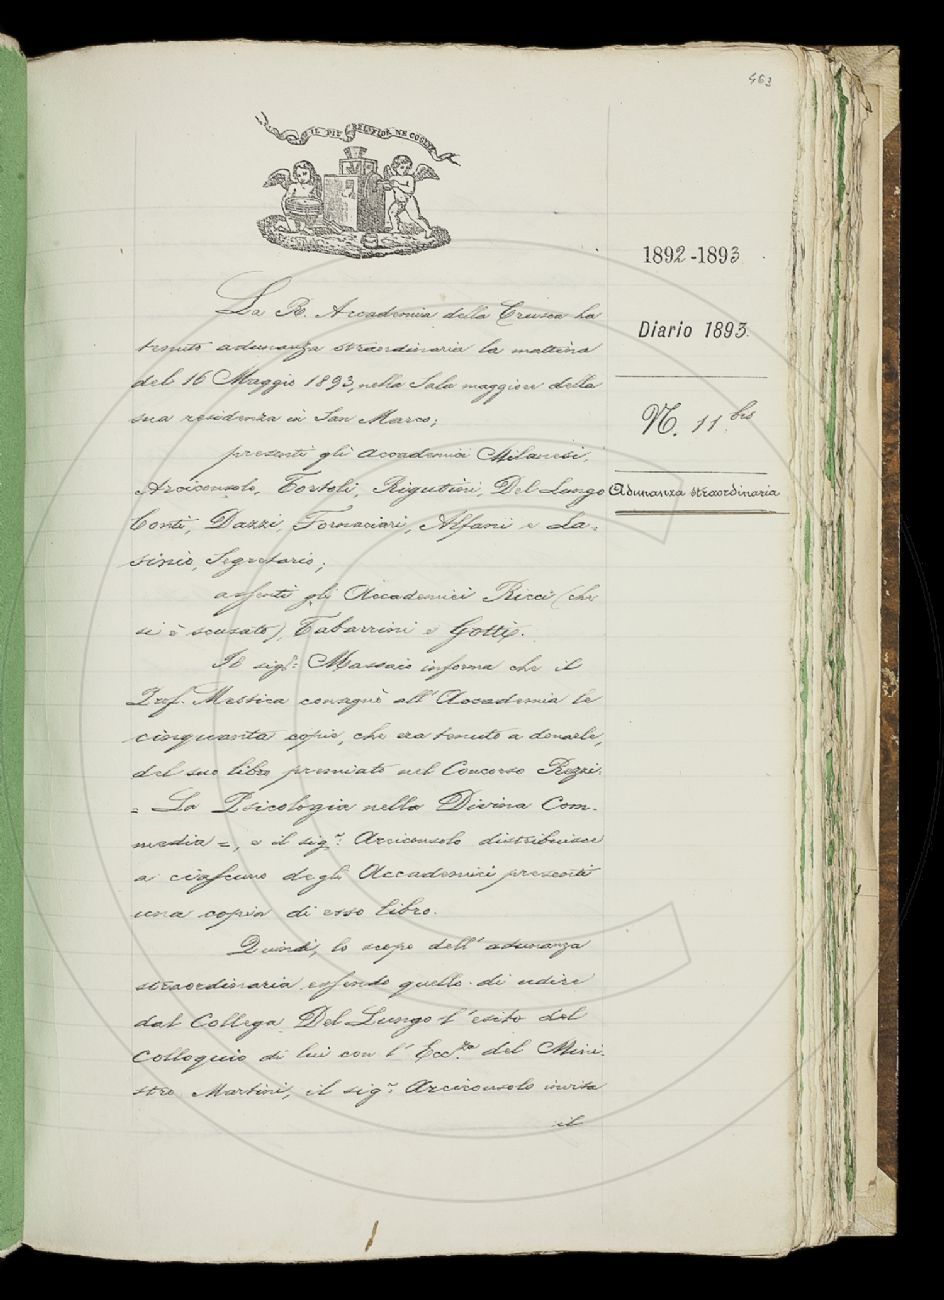 463
IL PIV BEL FIOR NE COGLIE
1892-1893
Diario 1893.
N. 11 bis
Adunanza straordinaria
La R. Accademia della Crusca ha
tenuto adunanza straordinaria la mattina
del 16 Maggio 1893, nella Sala maggiore della
sua residenza in San Marco;
presenti gli Accademici Milanesi,
Arciconsolo, Tortoli, Rigutini, Del Lungo
Conti, Dazzi, Fornaciari, Alfani e La=
sinio, Segretario;
assenti gli Accademici Ricci (che
si è scusato), Tabarrini e Gotti.
Il sigr. Massaio informa che il
Prof. Mestica consegnò all'Accademia le
cinquanta copie, che era tenuto a donarle,
del suo libro premiato nel Concorso Rezzi
= La Psicologia nella Divina Com-
media =, e il sigr. Arciconsolo distribuisce
a ciascuno degli Accademici presenti
una copia di esso libro.
Quindi, lo scopo dell'adunanza
straordinaria essendo quello di udire
dal Collega Del Lungo l'esito del
Colloquio di lui con l'Ecc.za del Mini-
stro Martini, il sigr. Arciconsolo invita
il